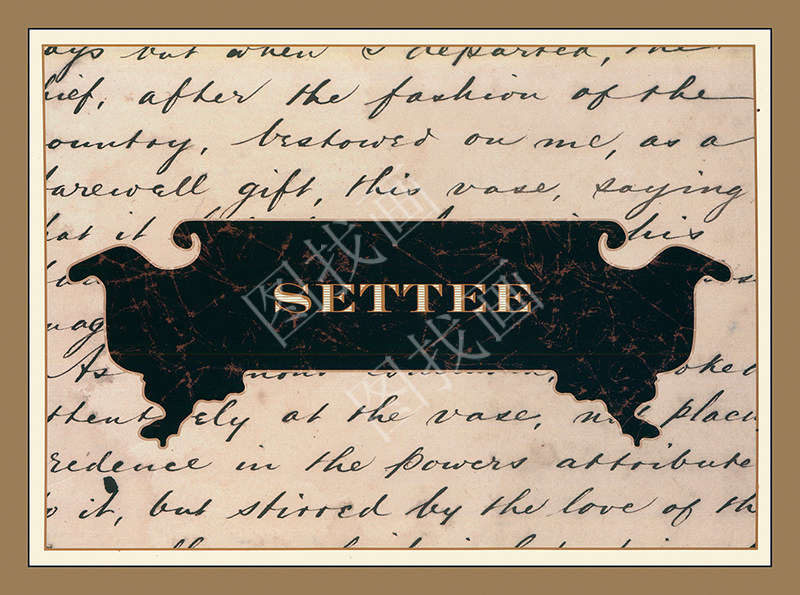 ays but when I departed, the
hief, after the fashion of the
ountry, bestowed on me, as a
arewell gift, this vase, saying
hat it his
SETTEE
mag
As oked
ttent ely at the vase, placi
redence in the powers attribute
o it, but stirred by the love of th
图找画
图找画